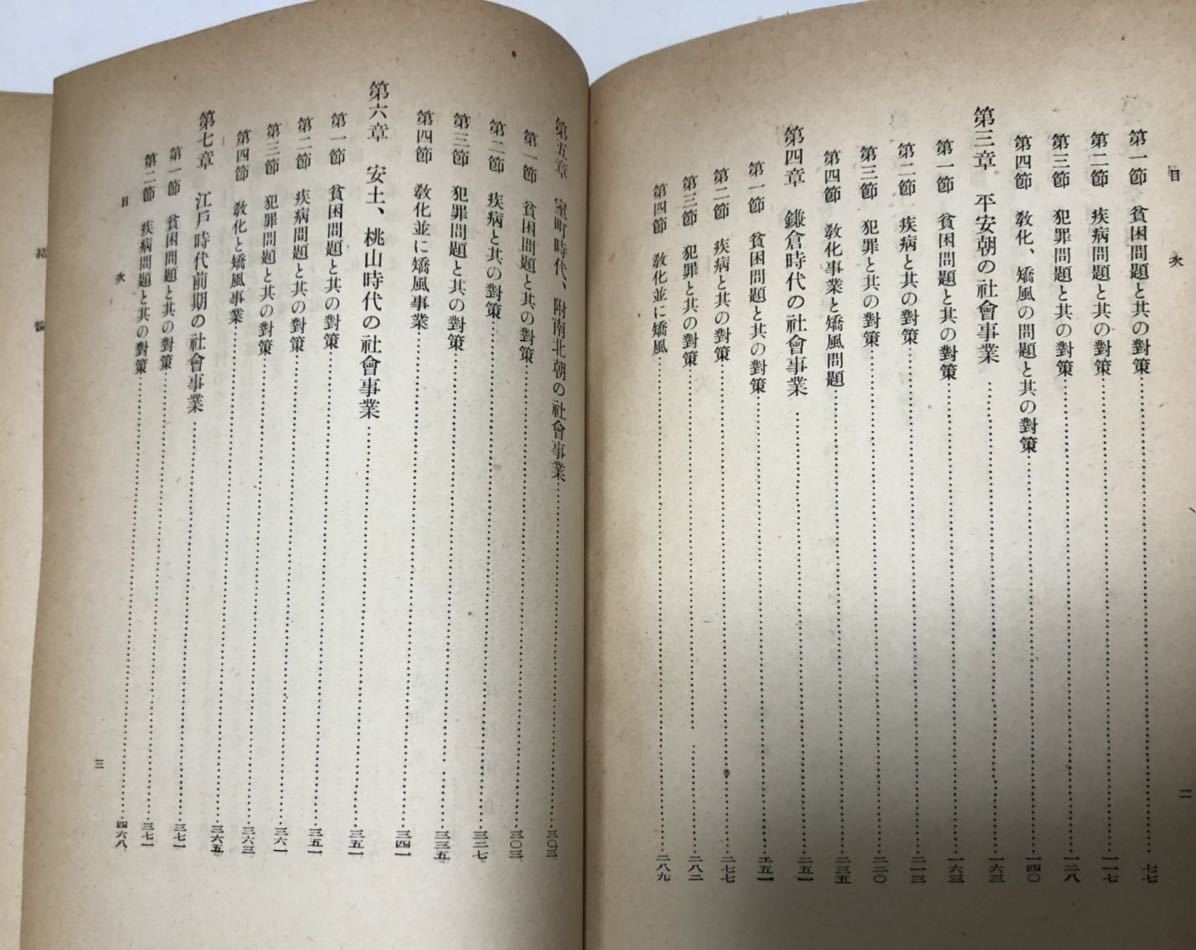 目次
第一節 貧困問題と其の對策……七七
第二節 疾病問題と其の對策……一一七
第三節 犯罪問題と其の對策……一二八
第四節 敎化、矯風の問題と其の對策……一四〇
第三章 平安朝の社會事業……一六三
第一節 貧困問題と其の對策……一六三
第二節 疾病と其の對策……二一三
第三節 犯罪と其の對策……二二〇
第四節 敎化事業と矯風問題……二三五
第四章 鎌倉時代の社會事業……二五一
第一節 貧困問題と其の對策……二五一
第二節 疾病と其の對策……二七七
第三節 犯罪と其の對策……二八二
第四節 敎化並に矯風……二八九
二
第五章 室町時代、附南北朝の社會事業……三〇三
第一節 貧困問題と其の對策……三〇三
第二節 疾病と其の對策……三二七
第三節 犯罪問題と其の對策……三三五
第四節 敎化並に矯風事業……三四一
第六章 安土、桃山時代の社會事業……三五一
第一節 貧困問題と其の對策……三五一
第二節 疾病問題と其の對策……三六一
第三節 犯罪問題と其の對策……三六三
第四節 敎化と矯風事業……三六五
第七章 江戸時代前期の社會事業……三七一
第一節 貧困問題と其の對策……三七一
第二節 疾病問題と其の對策……四六八
目次
三